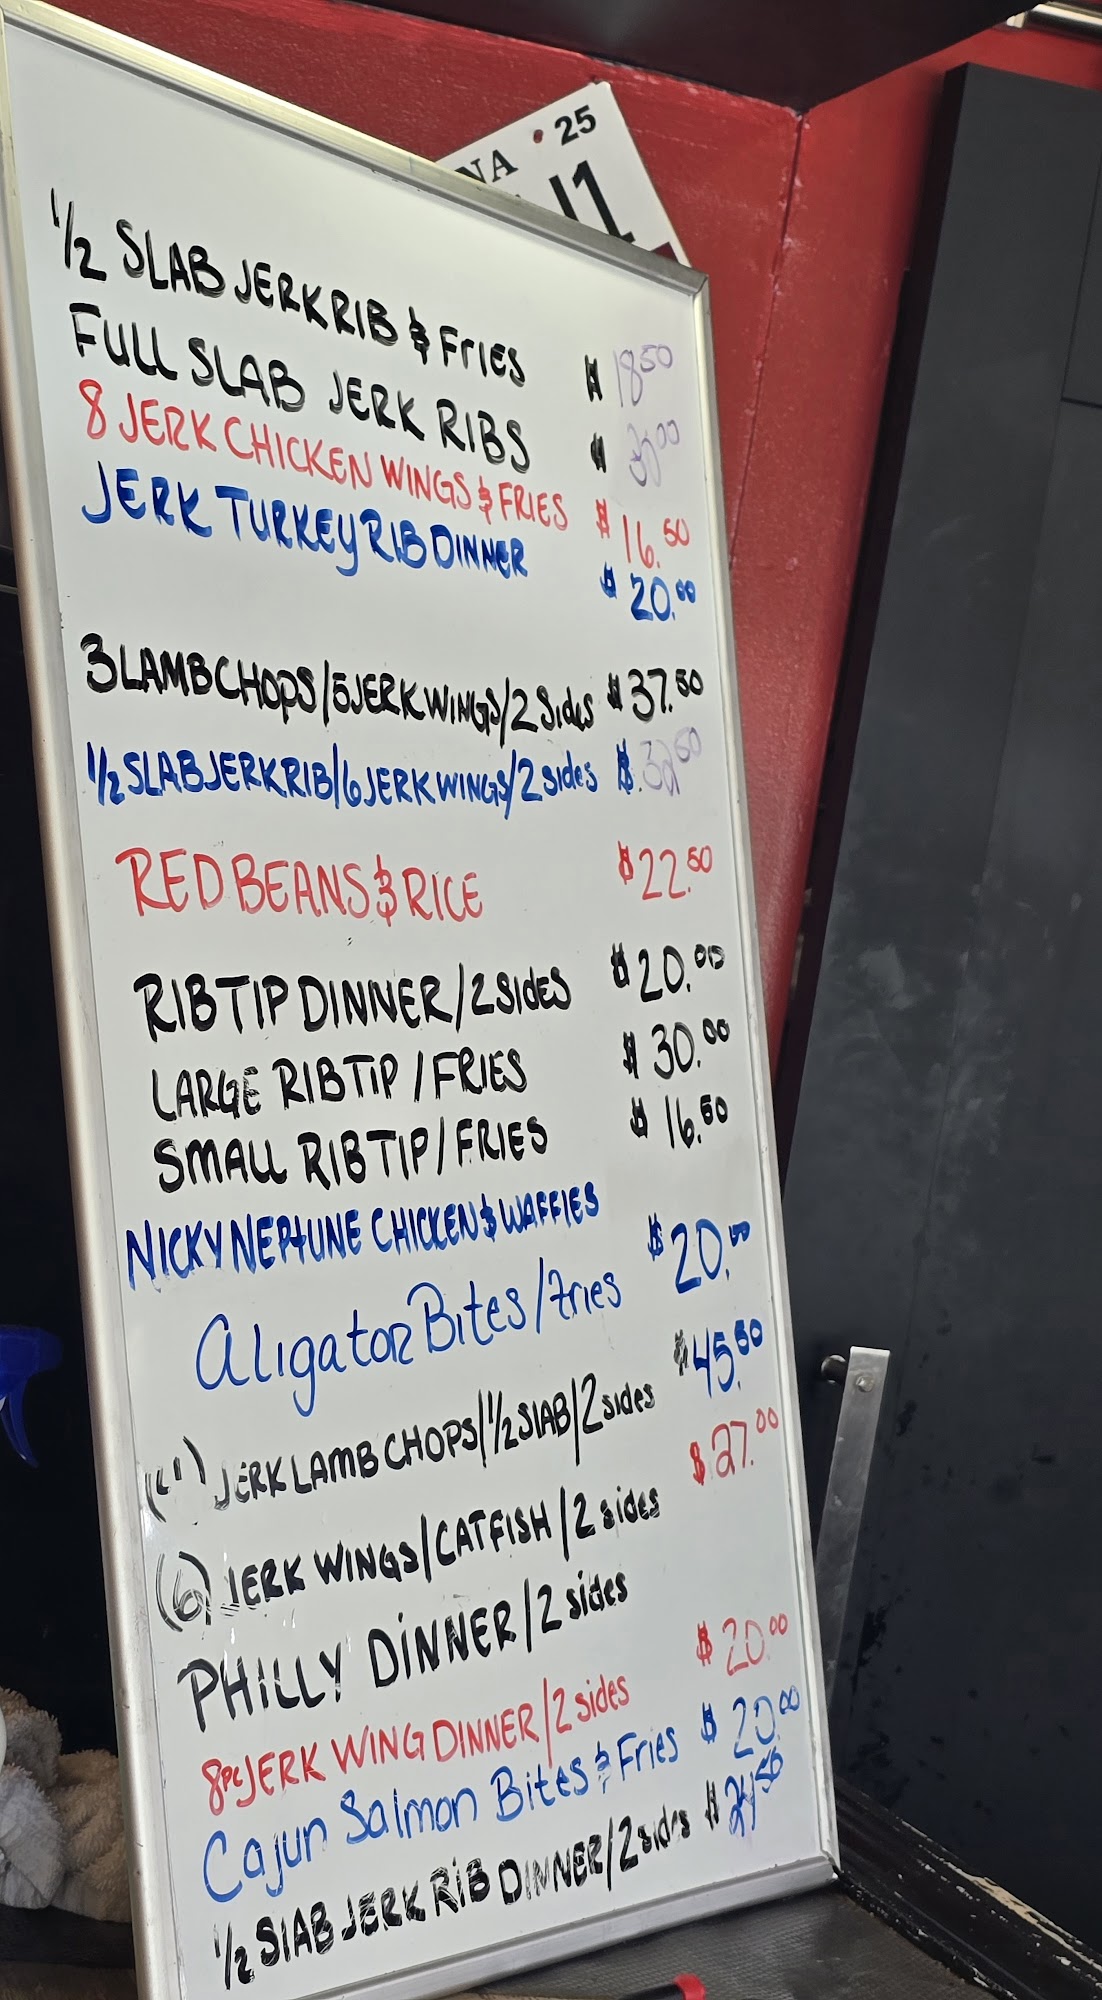 1/2 SLAB JERK RIB & Fries $ 18.50
FULL SLAB JERK RIBS $ 30.00
8 JERK CHICKEN WINGS & FRIES $ 16.50
JERK TURKEY RIB DINNER $ 20.00
3 LAMBCHOPS/5 JERK WINGS/2 Sides $ 37.50
1/2 SLAB JERK RIB/6 JERK WINGS/2 sides $.32.50
RED BEANS & RICE $22.50
RIB TIP DINNER/2 SIDES $20.00
LARGE RIB TIP/FRIES $ 30.00
SMALL RIB TIP/FRIES $ 16.50
NICKY NEPTUNE CHICKEN & WAFFLES
Aligator Bites/Fries $ 20.00
JERK LAMB CHOPS/1/2 SLAB/2 sides $45.50
(6) JERK WINGS/CATFISH/2 sides $27.00
PHILLY DINNER/2 sides
8PC JERK WING DINNER/2 sides $ 20.00
Cajun Salmon Bites & Fries $ 20.00
1/2 SLAB JERK RIB DINNER/2 sides $ 24.50
NA 25